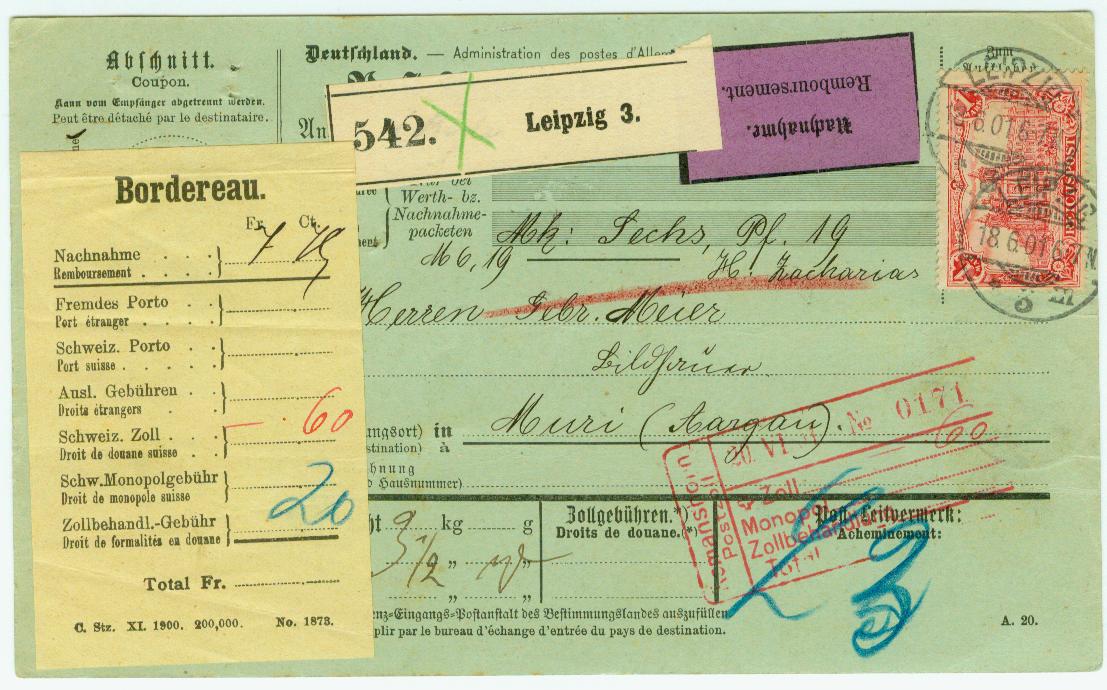 Abschnitt.
Coupon.
Kann vom Empfänger abgetrennt werden.
Peut être détaché par le destinataire.
Deutschland. — Administration des postes d'Allem
Zum
An
542. Leipzig 3.
Nachnahme.
Remboursement.
LEIPZIG
18.6.01.6-7N.
REICHSPOST
LEIPZIG
18.6.01.6-7N.
Werth- bz.
Nachnahme-
packeten
Mk: Sechs, Pf. 19
M 6,19
H. Zacharias
Herren Gebr. Meier
Bildhauer
ungsort) in
stination) à
Muri (Aargau).
hnung
d Hausnummer)
Bordereau.
Fr. Ct.
Nachnahme . . .
Remboursement . . . .
7 79
Fremdes Porto . .
Port étranger . . . .
Schweiz. Porto . .
Port suisse . . . . .
Ausl. Gebühren .
Droits étrangers . .
Schweiz. Zoll . . .
Droit de douane suisse .
— . 60
Schw. Monopolgebühr
Droit de monopole suisse
Zollbehandl.-Gebühr
Droit de formalités en douane
20
Total Fr.
C. Stz. XI. 1900. 200,000. No. 1873.
20 VI № 0171
60
Romanshorn
Postzoll
Zoll
Monopol
Zollbehandlg
Total
ht kg g
Zollgebühren.*)
Droits de douane.(*)
Post-Leitvermerk:
Acheminement:
5 1/2
enz-Eingangs-Postanstalt des Bestimmungslandes auszufüllen
plir par le bureau d'échange d'entrée du pays de destination.
A. 20.